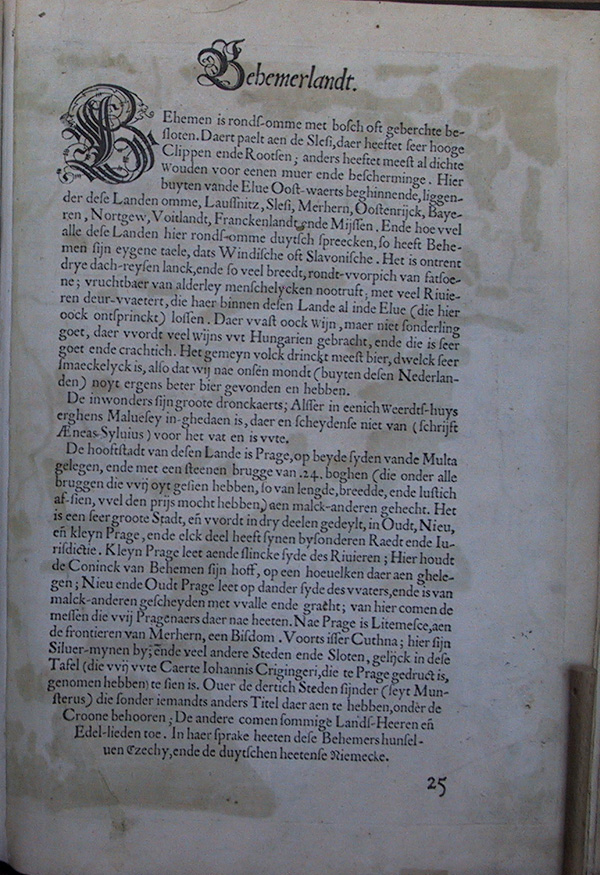 Behemerlandt.
BEhemen is ronds-omme met bosch oft geberchte be-
sloten. Daert paelt aen de Slesi, daer heeftet seer hooge
Clippen ende Rootsen; anders heeftet meest al dichte
Wouden voor eenen muer ende bescherminge. Hier
buyten vande Elue Oost-waerts beghinnende, liggen-
der dese Landen omme, Laussnitz, Slesi, Merhern, Oostenrijck, Baye-
ren, Nortgew, Voitlandt, Franckenlandt, ende Mijssen. Ende hoe vvel
alle dese Landen hier ronds-omme duytsch spreecken, so heeft Behe-
men sijn eygene taele, dats Windische oft Slavonische. Het is ontrent
drye dach-reysen lanck, ende so veel breedt, rondt-vvorpich van fatsoe-
ne; vruchtbaer van alderley menschelycken nootruft; met veel Riuie-
ren deur-vvaetert, die haer binnen desen Lande al inde Elue (die hier
oock ontsprinckt) lossen. Daer vvast oock wijn, maer niet sonderling
goet, daer vvordt veel wijns vvt Hungarien gebracht, ende die is seer
goet ende crachtich. Het gemeyn volck drinckt meest bier, dwelck seer
smaeckelyck is, also dat wij nae onsen mondt (buyten desen Nederlan-
den) noyt ergens beter bier gevonden en hebben.
De inwonders sijn groote dronckaerts; Alsser in eenich Weerdts-huys
erghens Maluesey in-ghedaen is, daer en scheydense niet van (schrijft
Æneas-Syluius) voor het vat en is vvte.
De hooftstadt van desen Lande is Prage, op beyde syden vande Multa
gelegen, ende met een steenen brugge van .24. boghen (die onder alle
bruggen die vvij oyt gesien hebben, so van lengde, breedde, ende lustich
af-sien, vvel den prijs mocht hebben,) aen malck-anderen gehecht. Het
is een seer groote Stadt, eñ vvordt in dry deelen gedeylt, in Oudt, Nieu,
eñ kleyn Prage, ende elck deel heeft synen bysonderen Raedt ende Iu-
risdictie. Kleyn Prage leet aende slincke syde des Riuieren; Hier houdt
de Coninck van Behemen sijn hoff, op een hoeuelken daer aen ghele-
gen; Nieu ende Oudt Prage leet op dander syde des vvaters, ende is van
malck-anderen gescheyden met vvalle ende gracht; van hier comen de
messen die vvij Pragenaers daer nae heeten. Nae Prage is Litemesce, aen
de frontieren van Merhern, een Bisdom. Voorts isser Cuthna; hier sijn
Siluer-mynen by; ende veel andere Steden ende Sloten, gelijck in dese
Tafel (die vvij vvte Caerte Iohannis Crigingeri, die te Prage gedruct is,
genomen hebben) te sien is. Ouer de dertich Steden sijnder (seyt Mun-
sterus) die sonder iemandts anders Titel daer aen te hebben, onder de
Croone behooren; De andere comen sommige Lands-Heeren eñ
Edel-lieden toe. In haer sprake heeten dese Behemers hunsel-
uen Czechy, ende de duytschen heetense Niemecke.
25